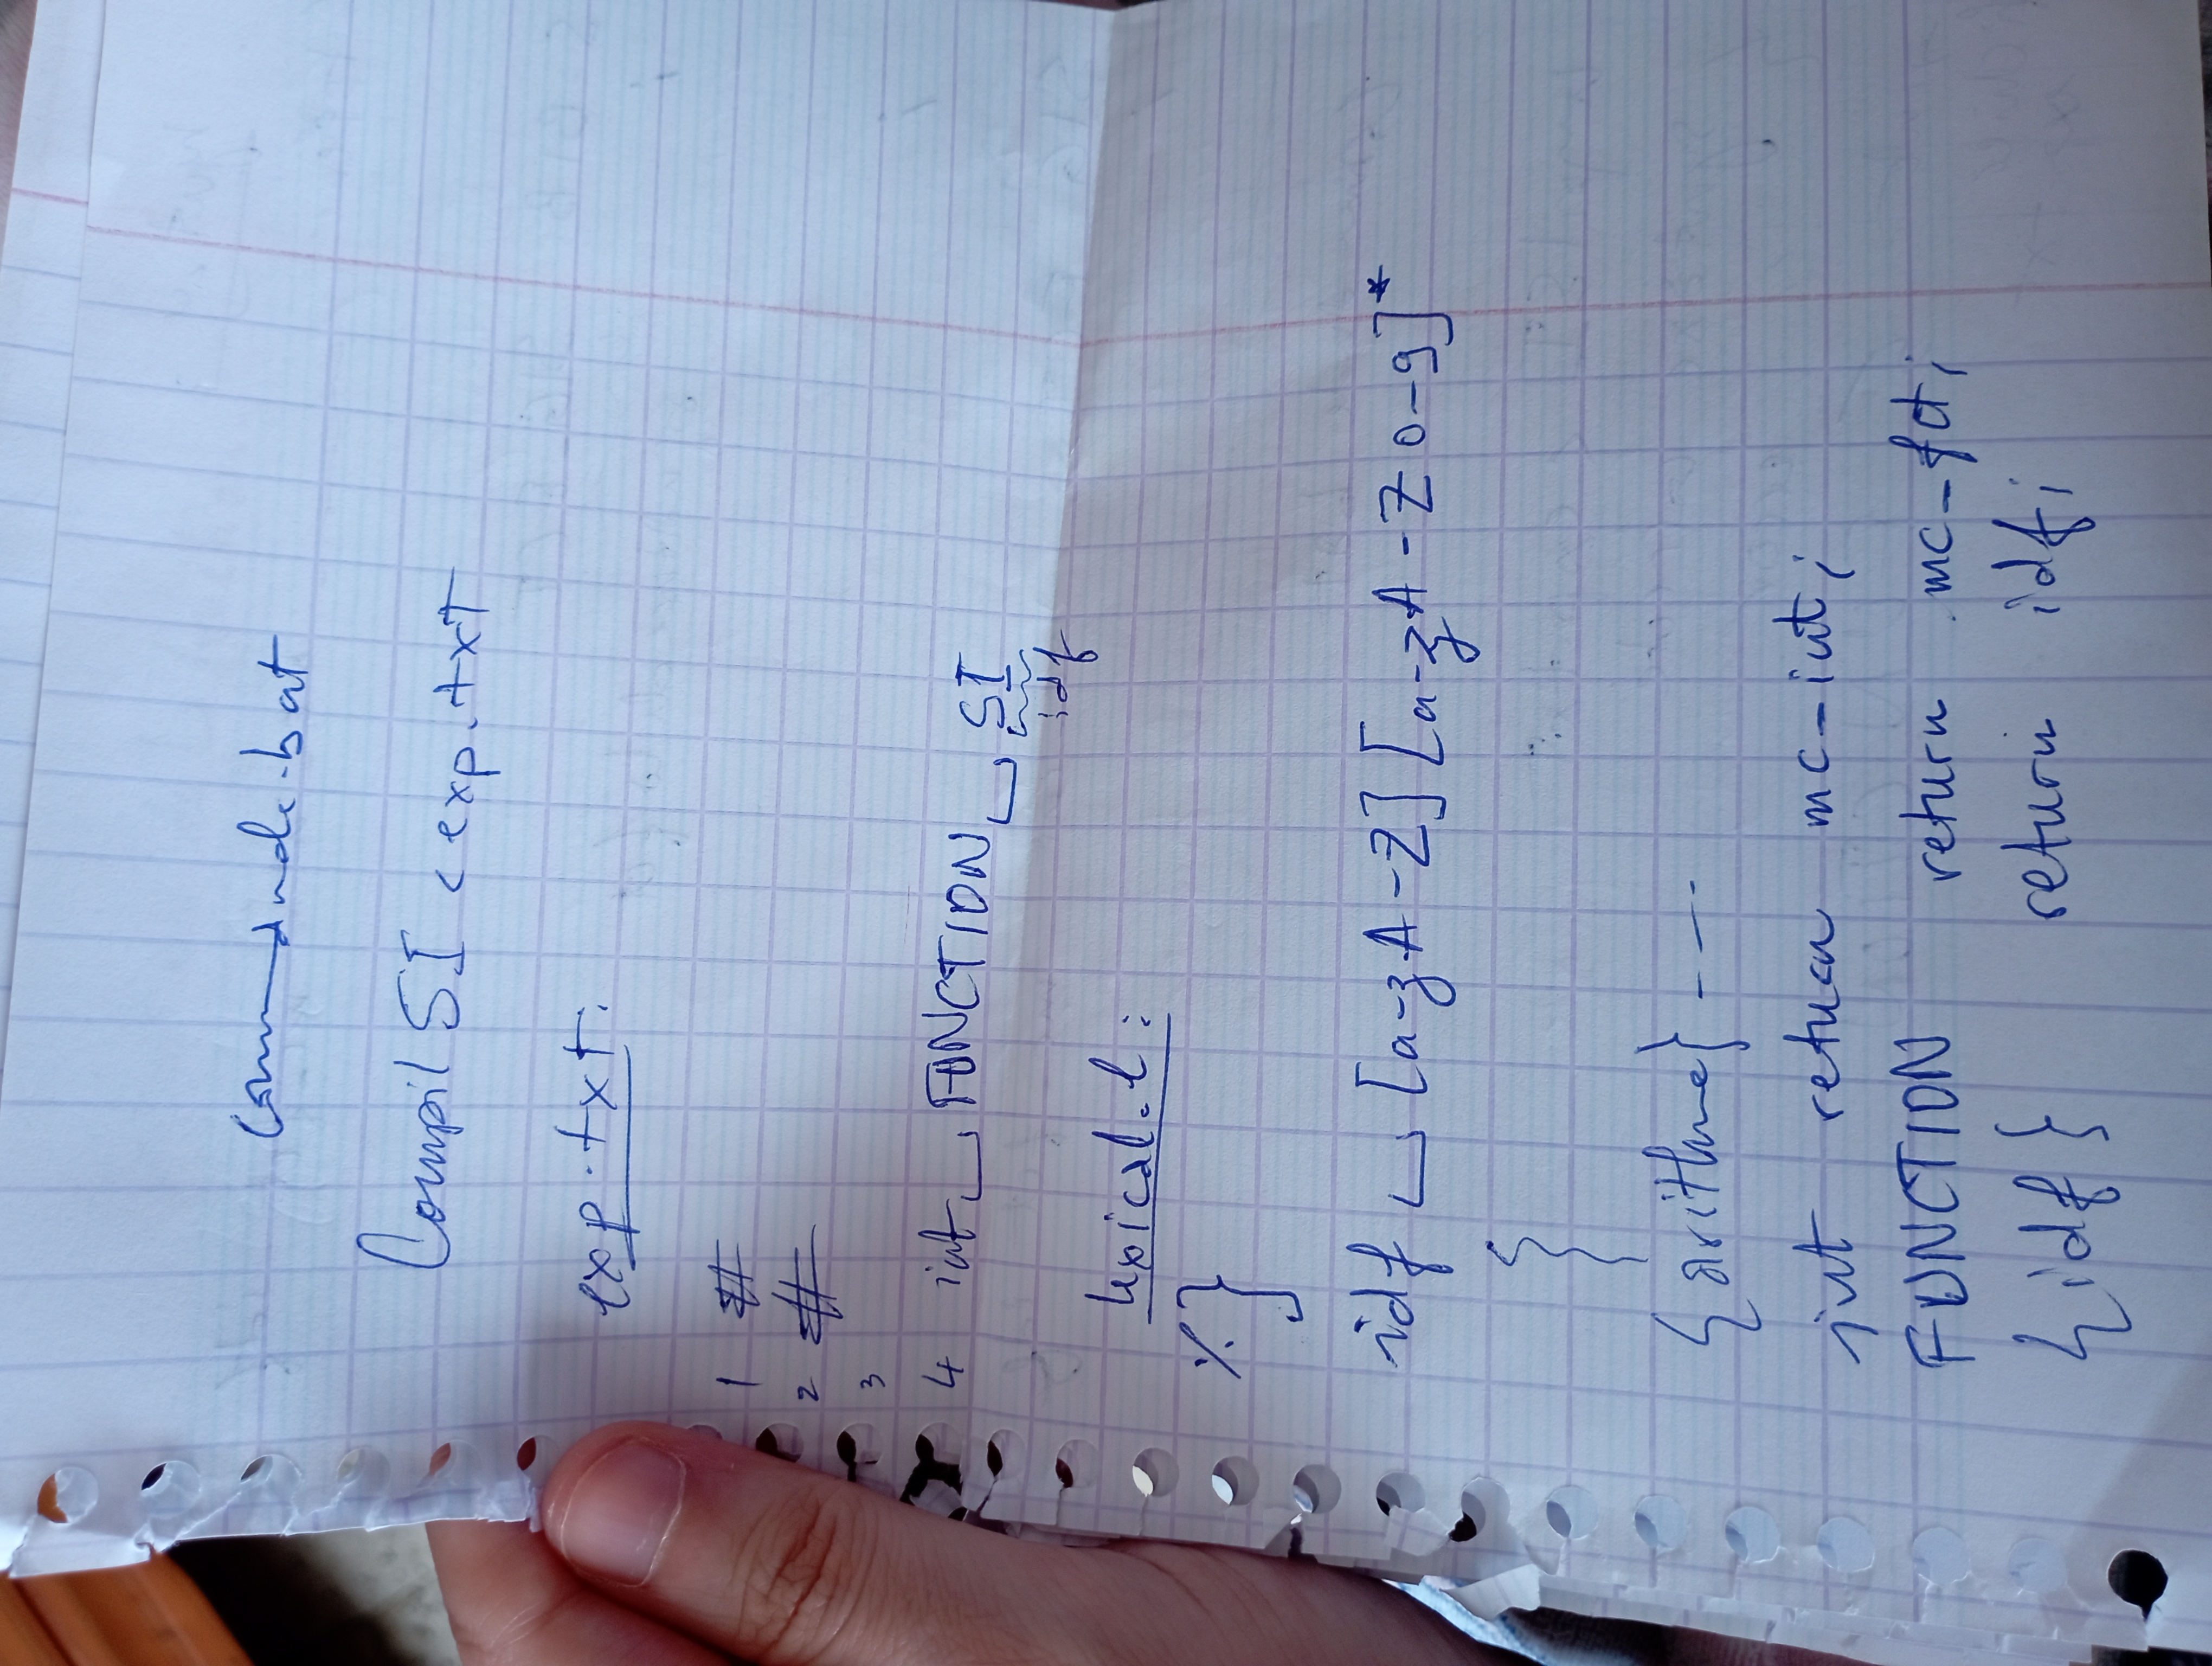 commande.bat
Compil SI < exp.txt
exp.txt:
1 #
2 #
3
4 int ␣ FUNCTION ␣ SI
idf
lexical.l:
%}
idf ␣ [a-zA-Z][a-zA-Z0-9]*
{
{arithme} ----
int return mc-int;
FUNCTION return mc-fct;
{idf} return idf;